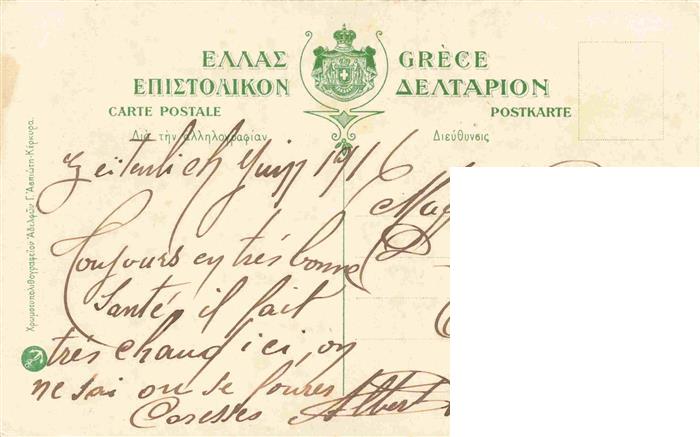 ΕΛΛΑΣ GRÈCE
ΕΠΙΣΤΟΛΙΚΟΝ ΔΕΛΤΑΡΙΟΝ
CARTE POSTALE POSTKARTE
Διὰ τὴν ἀλληλογραφίαν Διεύθυνσις
Zeitenlich Juin 1916
Toujours en très bonne
Santé, il fait
très chaud ici, on
ne sai ou se
Caresses Albert
Χρωμοτυπολιθογραφείον Ἀδελφῶν Γ. Ἀσπιώτη-Κέρκυρα.